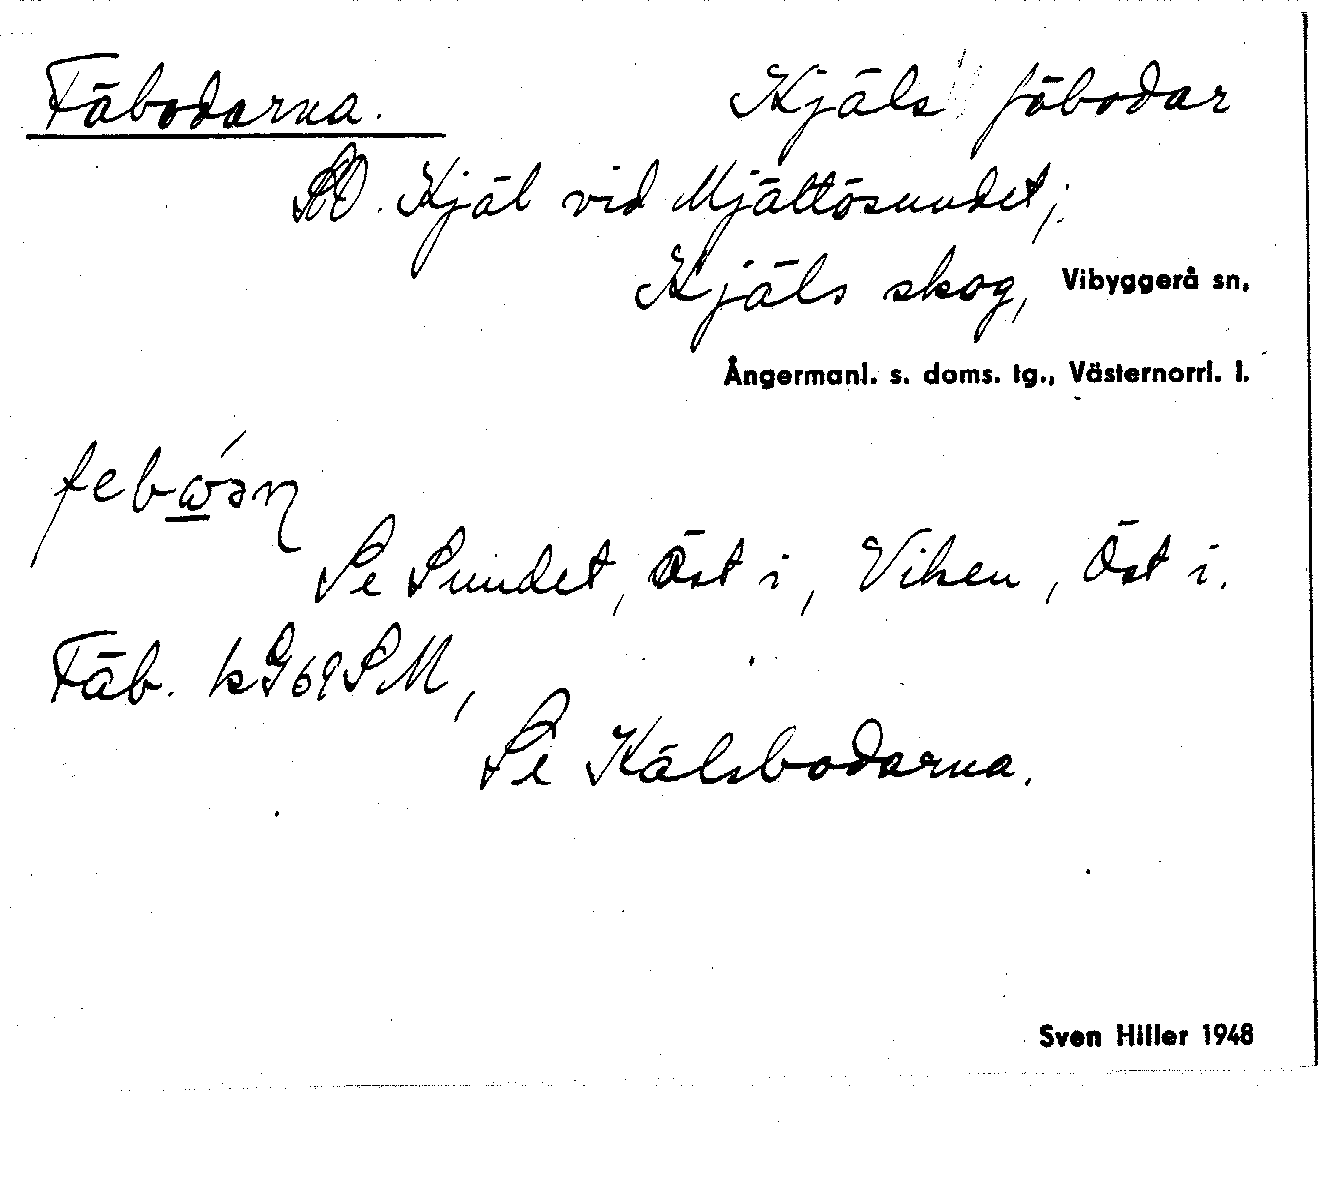 Fäbodarna. Kjäls fäbodar
SO. Kjäl vid Mjältösundet;
Kjäls skog, Vibyggerå sn,
Ångermanl. s. doms. tg., Västernorrl. l.
Se Sundet, Öst i, Viken, Öst i.
Fäb. kG69SM,
Se Kälsbodarna.
Sven Hiller 1948